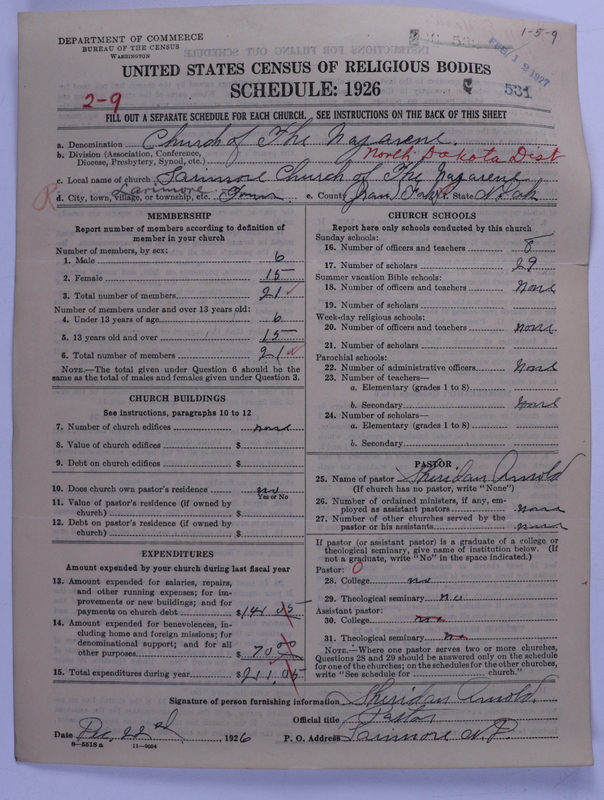 1-5-9
DEPARTMENT OF COMMERCE
BUREAU OF THE CENSUS
WASHINGTON
FEB 12 1927
UNITED STATES CENSUS OF RELIGIOUS BODIES
SCHEDULE: 1926
531
2-9
FILL OUT A SEPARATE SCHEDULE FOR EACH CHURCH. SEE INSTRUCTIONS ON THE BACK OF THIS SHEET
a. Denomination Church of The Nazarene.
b. Division (Association, Conference, Diocese, Presbytery, Synod, etc.) North Dakota Dist
c. Local name of church Larimore Church of The Nazarene
d. City, town, village, or township, etc. Larimore Town e. County Grand Forks f. State N. Dak
MEMBERSHIP
Report number of members according to definition of member in your church
Number of members, by sex:
1. Male 6
2. Female 15
3. Total number of members 21
Number of members under and over 13 years old:
4. Under 13 years of age 6
5. 13 years old and over 15
6. Total number of members 21
NOTE.—The total given under Question 6 should be the same as the total of males and females given under Question 3.
CHURCH BUILDINGS
See instructions, paragraphs 10 to 12
7. Number of church edifices none
8. Value of church edifices $
9. Debt on church edifices $
10. Does church own pastor's residence no
Yes or No
11. Value of pastor's residence (if owned by church) $
12. Debt on pastor's residence (if owned by church) $
EXPENDITURES
Amount expended by church during last fiscal year
13. Amount expended for salaries, repairs, and other running expenses; for improvements or new buildings; and for payments on church debt $141.05
14. Amount expended for benevolences, including home and foreign missions; for denominational support; and for all other purposes $ 70.00
15. Total expenditures during year $211.05
CHURCH SCHOOLS
Report here only schools conducted by this church
Sunday schools:
16. Number of officers and teachers 8
17. Number of scholars 29
Summer vacation Bible schools:
18. Number of officers and teachers None
19. Number of scholars
Week-day religious schools:
20. Number of officers and teachers None
21. Number of scholars
Parochial schools:
22. Number of administrative officers None
23. Number of teachers—
a. Elementary (grades 1 to 8)
b. Secondary None
24. Number of scholars—
a. Elementary (grades 1 to 8)
b. Secondary
PASTOR
25. Name of pastor Sheridan Arnold
(If church has no pastor, write "None")
26. Number of ordained ministers, if any, employed as assistant pastors None
27. Number of other churches served by the pastor or his assistants None
If pastor (or assistant pastor) is a graduate of a college or theological seminary, give name of institution below. (If not a graduate, write "No" in the space indicated.)
Pastor: 0
28. College no
29. Theological seminary no
Assistant pastor:
30. College no
31. Theological seminary no
NOTE.—Where one pastor serves two or more churches, Questions 28 and 29 should be answered only on the schedule for one of the churches; on the schedules for the other churches, write "See schedule for church."
Signature of person furnishing information Sheridan Arnold.
Official title Pastor
Date Dec. 22nd 1926 P. O. Address Larimore N.D.
8-5518a 11-9034